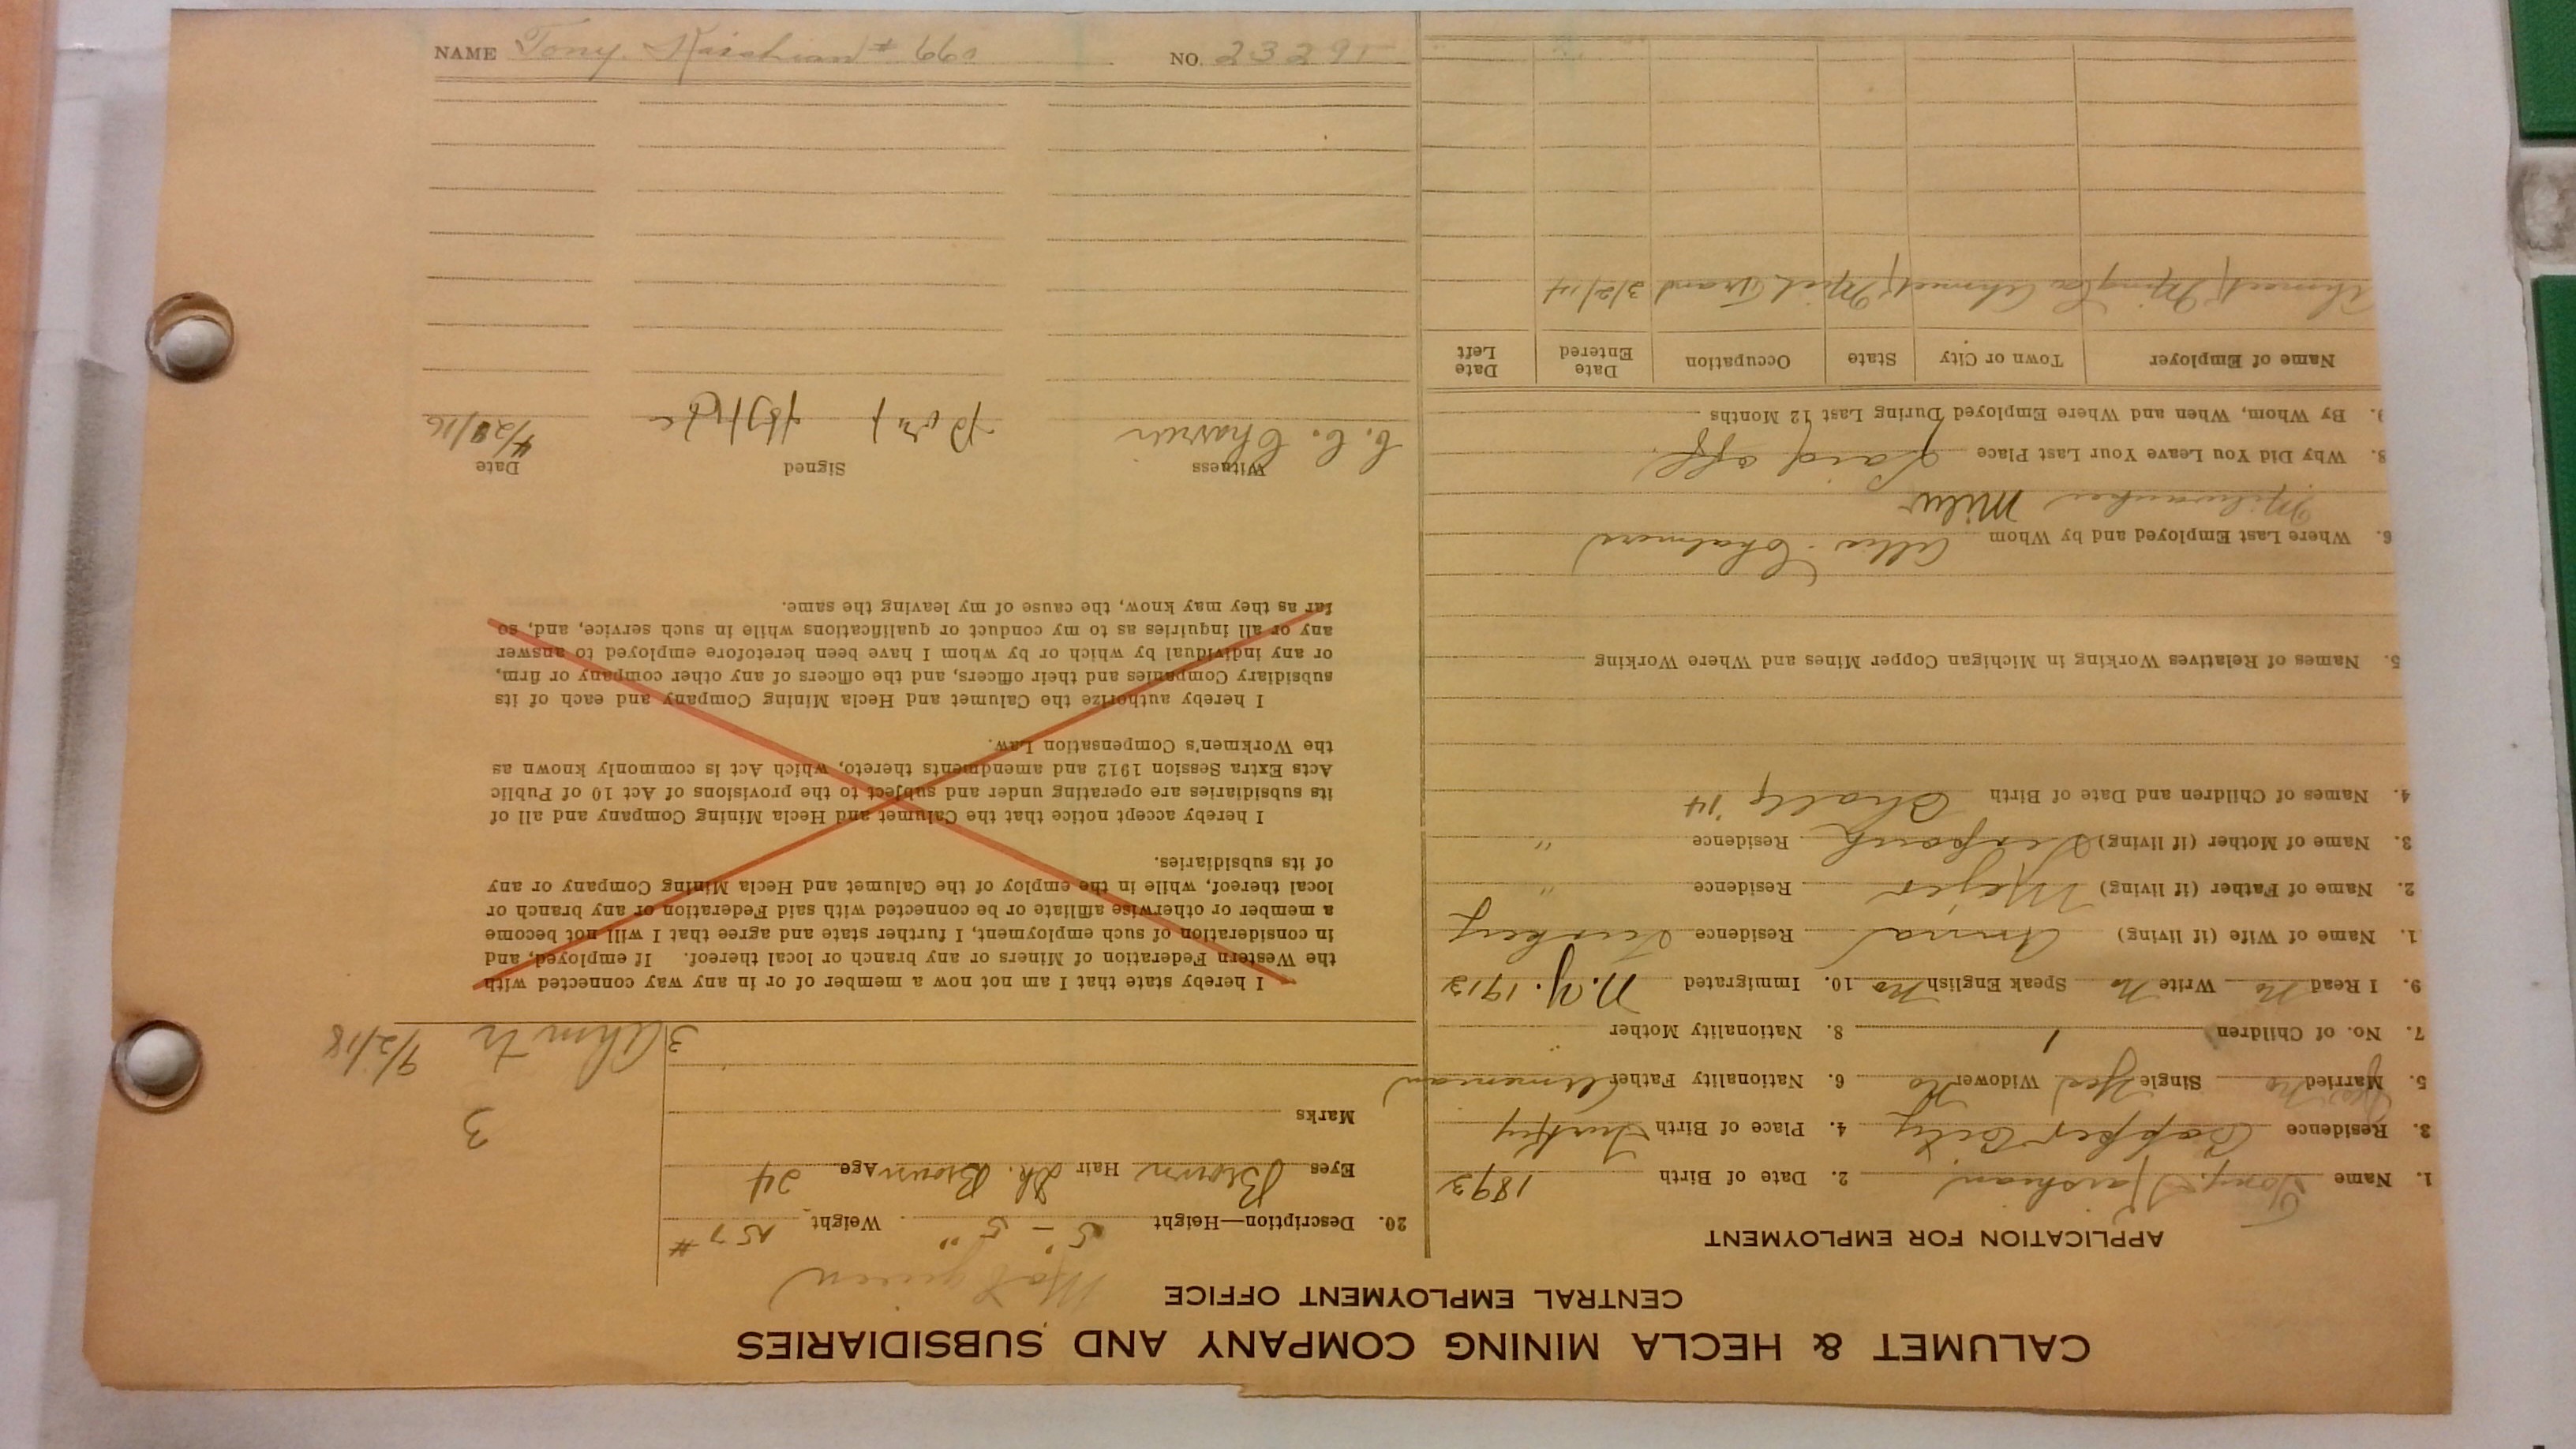 CALUMET & HECLA MINING COMPANY AND SUBSIDIARIES
CENTRAL EMPLOYMENT OFFICE
APPLICATION FOR EMPLOYMENT
1. Name Tony Kaishian 2. Date of Birth 1893
3. Residence Copper City 4. Place of Birth Turkey
5. Married No Single Yes Widower No 6. Nationality Father Armenian
7. No. of Children 1 8. Nationality Mother "
9. I Read No Write No Speak English No 10. Immigrated N.Y. 1913
1. Name of Wife (if living) Anna Residence Turkey
2. Name of Father (if living) Residence "
3. Name of Mother (if living) Residence "
4. Names of Children and Date of Birth '14
5. Names of Relatives Working in Michigan Copper Mines and Where Working
6. Where Last Employed and by Whom Allis-Chalmers
Milwaukee Milw
8. Why Did You Leave Your Last Place Laid off.
9. By Whom, When and Where Employed During Last 12 Months
Name of Employer Town or City State Occupation Date Entered Date Left
Ahmeek Ahmeek Mich 3/2/14
Not given
20. Description—Height 5'-5" Weight 157#
Eyes Brown Hair Dk. Brown Age 24
Marks
3
3 Ahm tr 9/2/18
I hereby state that I am not now a member of or in any way connected with
the Western Federation of Miners or any branch or local thereof. If employed, and
in consideration of such employment, I further state and agree that I will not become
a member or otherwise affiliate or be connected with said Federation or any branch or
local thereof, while in the employ of the Calumet and Hecla Mining Company or any
of its subsidiaries.
I hereby accept notice that the Calumet and Hecla Mining Company and all of
its subsidiaries are operating under and subject to the provisions of Act 10 of Public
Acts Extra Session 1912 and amendments thereto, which Act is commonly known as
the Workmen's Compensation Law.
I hereby authorize the Calumet and Hecla Mining Company and each of its
subsidiary Companies and their officers, and the officers of any other company or firm,
or any individual by which or by whom I have been heretofore employed to answer
any or all inquiries as to my conduct or qualifications while in such service, and, so
far as they may know, the cause of my leaving the same.
Witness Signed Date
C. C. 4/28/16
NAME Tony Kaishian #660 NO. 23295